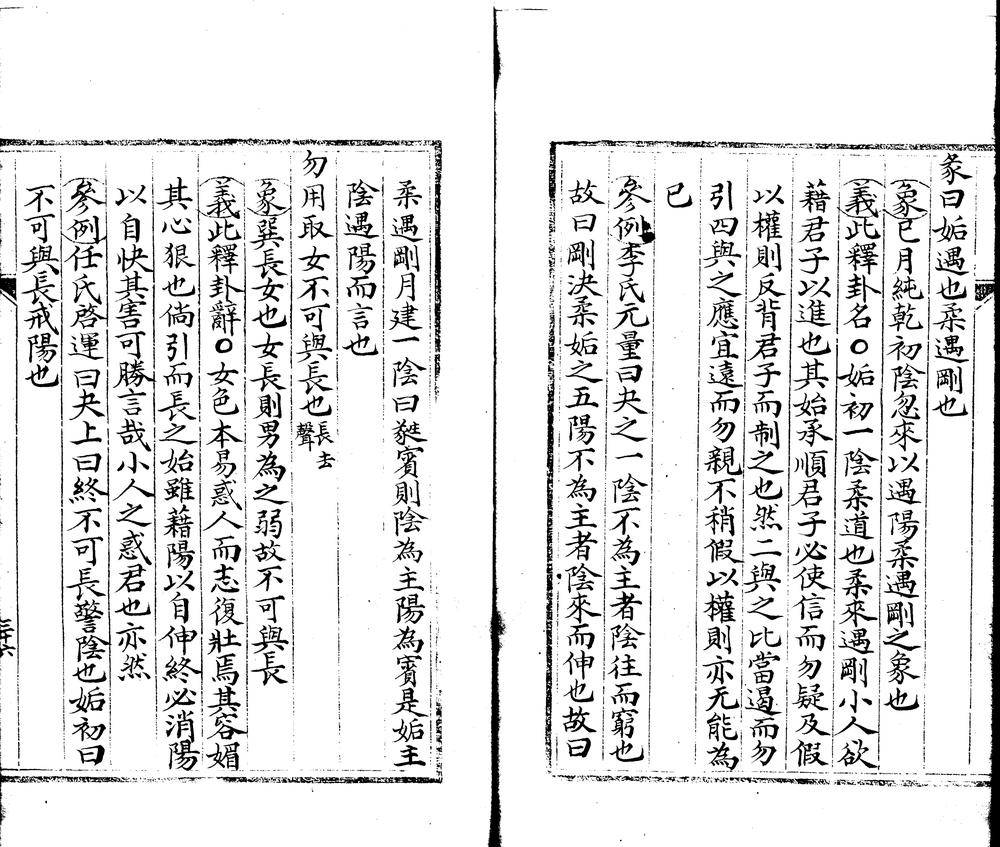 彖曰姤遇也柔遇剛也
象巳月純乾初陰忽來以遇陽柔遇剛之象也
義此釋卦名○姤初一陰柔道也柔來遇剛小人欲
藉君子以進也其始承順君子必使信而勿疑及假
以權則反背君子而制之也然二與之比當遏而勿
引四與之應宜遠而勿親不稍假以權則亦无能為
已
參例李氏元量曰夬之一陰不為主者陰往而窮也
故曰剛決柔姤之五陽不為主者陰來而伸也故曰
柔遇剛月建一陰曰蕤賓則陰為主陽為賓是姤主
陰遇陽而言也
勿用取女不可與長也長去聲
象巽長女也女長則男為之弱故不可與長
義此釋卦辭○女色本易惑人而志復壯焉其容媚
其心狠也倘引而長之始雖藉陽以自伸終必消陽
以自快其害可勝言哉小人之惑君也亦然
參例任氏啓運曰夬上曰終不可長警陰也姤初曰
不可與長戒陽也
三十六